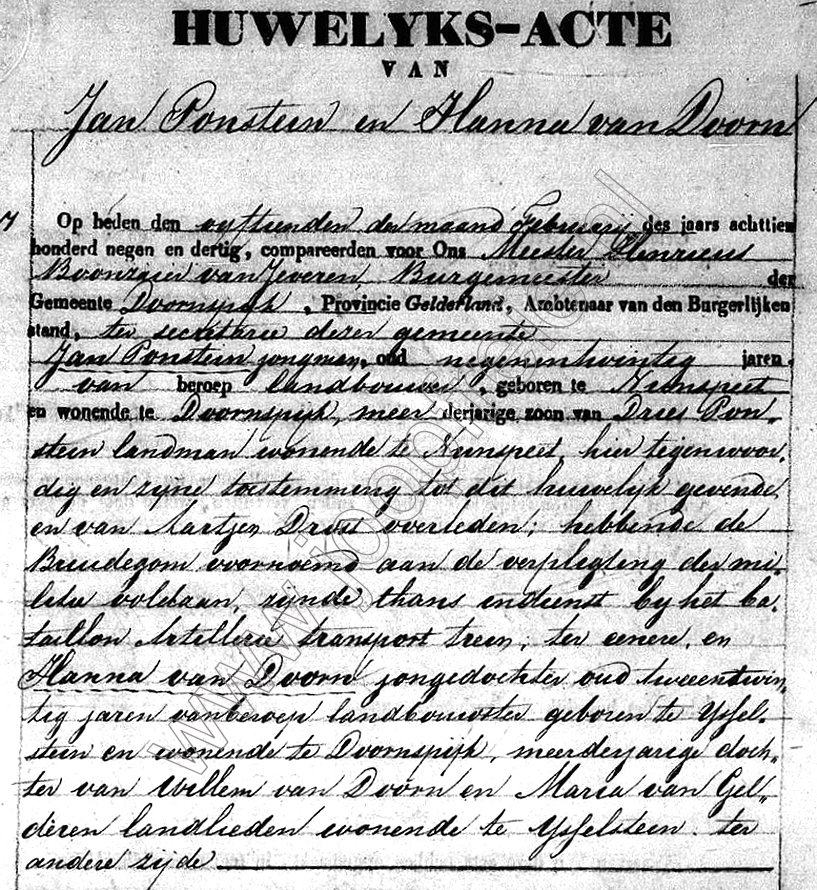 HUWELYKS-ACTE
VAN
Jan Ponstein en Hanna van Doorn
7
Op heden den vyftienden der maand Februarij des jaars achttien
honderd negen en dertig, compareerden voor Ons Meester Henricus
Boonzajer van Jeveren, Burgemeester der
Gemeente Doornspijk, Provincie Gelderland, Ambtenaar van den Burgerlijken
stand, ter secretarie dezer gemeente
Jan Ponstein jongman, oud negenentwintig jaren
van beroep landbouwer, geboren te Nunspeet
en wonende te Doornspijk, meerderjarige zoon van Drees Pon-
stein landman wonende te Nunspeet, hier tegenwoor-
dig en zijne toestemming tot dit huwelyk gevende,
en van Aartjen Drost overleden; hebbende de
Bruidegom voornoemd aan de verpligting der mi-
litie voldaan, zijnde thans indienst by het ba-
taillon Artillerie transport trein; ter eenere, en
Hanna van Doorn jongedochter oud tweeentwin-
tig jaren van beroep landbouwster geboren te Yssel-
stein en wonende te Doornspijk, meerderjarige doch-
ter van Willem van Doorn en Maria van Gel-
deren landlieden wonende te Ysselstein. ter
andere zijde